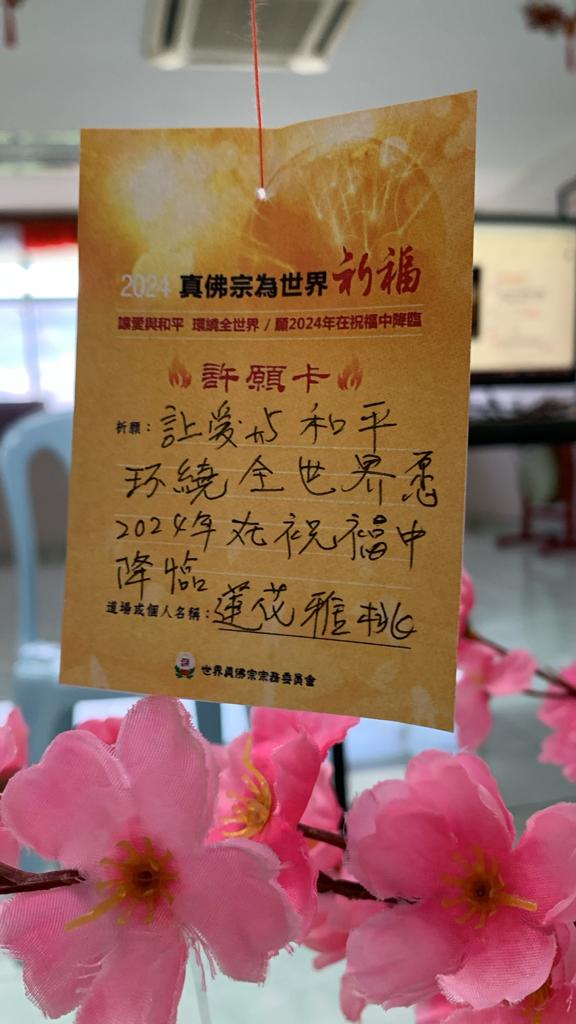 2024 真佛宗為世界祈福
讓愛與和平 環繞全世界 / 願2024年在祝福中降臨
許願卡
祈願：让爱与和平
环繞全世界愿
2024年在祝福中
降临
道場或個人名稱：蓮花雅桃
世界真佛宗宗務委員會